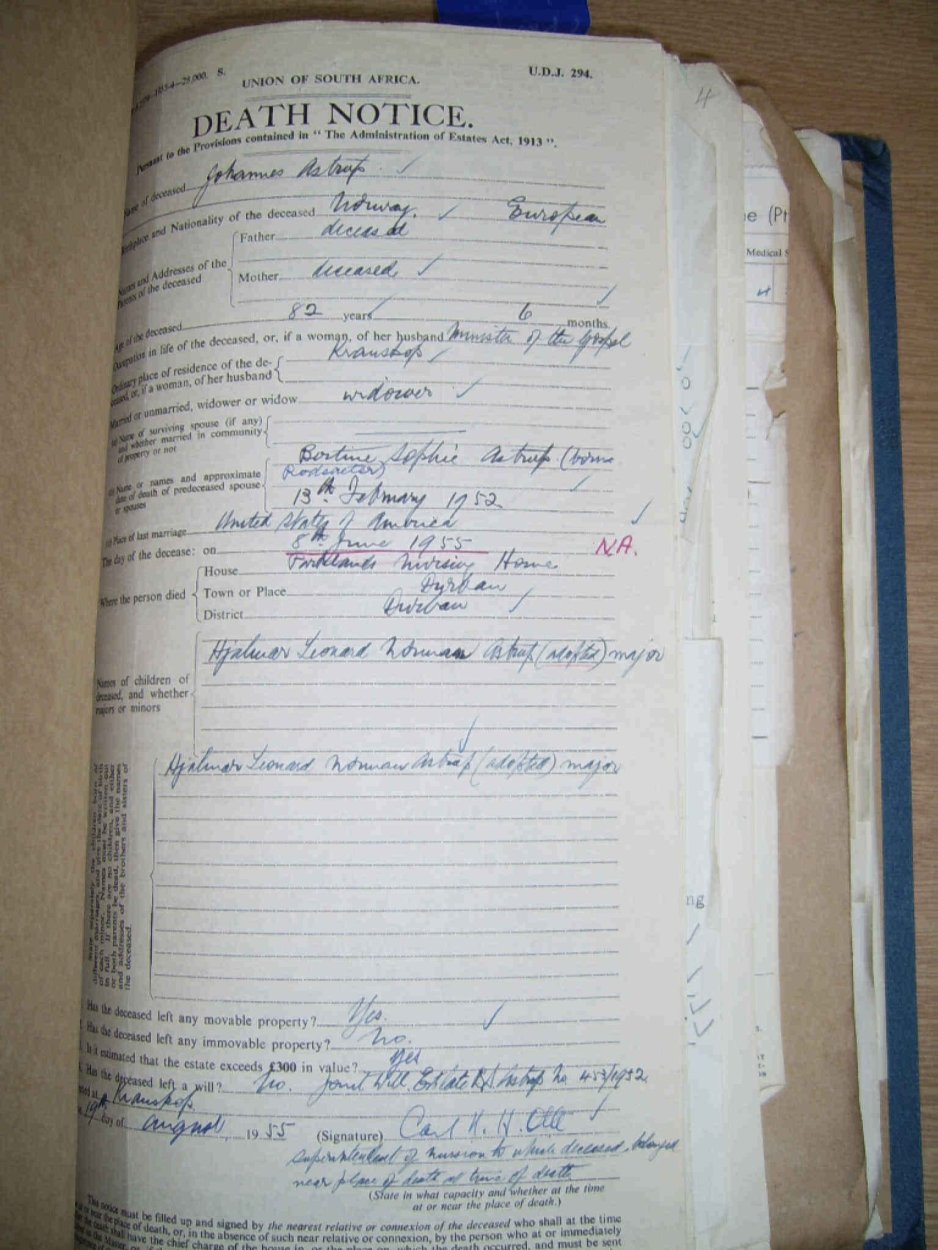 25,000. S.
UNION OF SOUTH AFRICA.
U.D.J. 294.
DEATH NOTICE.
Pursuant to the Provisions contained in "The Administration of Estates Act, 1913".
4
Name of deceased Johannes Astrup
Birthplace and Nationality of the deceased Norway. European
Names and Addresses of the Parents of the deceased
Father deceased
Mother deceased
Age of the deceased 82 years 6 months.
Occupation in life of the deceased, or, if a woman, of her husband Minister of the Gospel
Ordinary place of residence of the deceased, or, if a woman, of her husband Kranskop
Married or unmarried, widower or widow widower
(a) Name of surviving spouse (if any) and whether married in community of property or not
(b) Name or names and approximate date of death of predeceased spouse or spouses
Bertine Sophie Astrup (borne
13th February 1952
(c) Place of last marriage United States of America
The day of the decease: on 8th June 1955 N.A.
Where the person died
House Parklands Nursing Home
Town or Place Durban
District Durban
Names of children of deceased, and whether majors or minors
Hjalmar Leonard Norman Astrup (adopted) major
Hjalmar Leonard Norman Astrup (adopted) major
of each minor. Names must be written out
in full. If there are no children, and either
or both parents be dead, then give the names
and addresses of the brothers and sisters of
the deceased.
Has the deceased left any movable property? Yes.
Has the deceased left any immovable property? No.
Is it estimated that the estate exceeds £300 in value? Yes
Has the deceased left a will? No. Joint Will Estate Astrup No 453/1952
Dated at Kranskop
19th day of August 1955 (Signature) Carl
superintendent of mission to which deceased belonged
near place of death at time of death
(State in what capacity and whether at the time
at or near the place of death.)
This notice must be filled up and signed by the nearest relative or connexion of the deceased who shall at the time
or near the place of death, or, in the absence of such near relative or connexion, by the person who at or immediately
the death shall have the chief charge of the house in, or the place on, which the death occurred, and must be sent
Medical S
ng